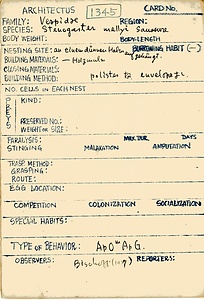 ARCHITECTUS 1345 CARD No.
FAMILY: Vespidae REGION:
SPECIES: Stenogaster mellyi Saussure
BODY WEIGHT: BODY-LENGTH
NESTING SITE: an einem dünnen BURROWING HABIT (—)
BUILDING MATERIALS: — Holzmulm
CLOSING MATERIALS:
BUILDING METHOD: envelope.
NO. CELLS IN EACH NEST
PREYS KIND:
PRESERVED NO.:
WEIGHT OR SIZE:
PARALYSIS: MAX. DUR. DAYS
STINGING MALAXATION AMPUTATION
TRASP. METHOD:
GRASPING:
ROUTE:
EGG LOCATION:
COMPETITION COLONIZATION SOCIALIZATION
SPECIAL HABITS:
TYPE OF BEHAVIOR:
OBSERVERS: Bischoff REPORTERS: